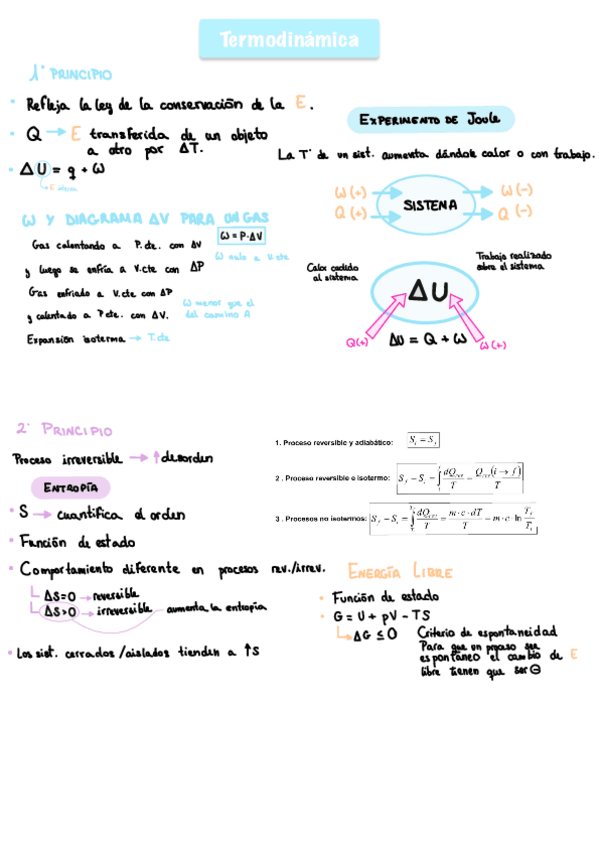 Termodinámica
1º PRINCIPIO
• Refleja la ley de la conservación de la E.
• Q → E transferida de un objeto
a otro por ΔT.
• ΔU = q + W
→ E interna
W Y DIAGRAMA ΔV PARA UN GAS
W = P·ΔV
Gas calentando a P.cte. con ΔV
W nulo a V.cte
y luego se enfría a V.cte con ΔP
Gas enfriado a V.cte con ΔP
W menor que el
y calentado a P cte. con ΔV.
del camino A
Expansión isoterma → T.cte
EXPERIMENTO DE Joule
La Tº de un sist. aumenta dándole calor o con trabajo.
W (+)
Q (+)
SISTEMA
W (-)
Q (-)
Calor cedido
al sistema
Trabajo realizado
sobre el sistema
ΔU
Q(+)
ΔU = Q + W
W(+)
2º PRINCIPIO
Proceso irreversible → ↑ desorden
ENTROPÍA
• S → cuantifica el orden
• Función de estado
• Comportamiento diferente en procesos rev./irrev.
ΔS=0 → reversible
ΔS>0 → irreversible aumenta la entropía
• Los sist. cerrados/aislados tienden a ↑S
1. Proceso reversible y adiabático: S_i = S_f
2 . Proceso reversible e isotermo: S_f − S_i = ∫ dQ_rev / T = Q_rev (i → f) / T
3 . Procesos no isotermos: S_f − S_i = ∫ dQ_rev / T = m · c · dT / T = m · c · ln T_f / T_i
ENERGÍA LIBRE
• Función de estado
• G = U + pV - TS
ΔG ≤ 0 Criterio de espontaneidad
Para que un proceso sea
espontáneo el cambio de E
libre tienen que ser ⊖